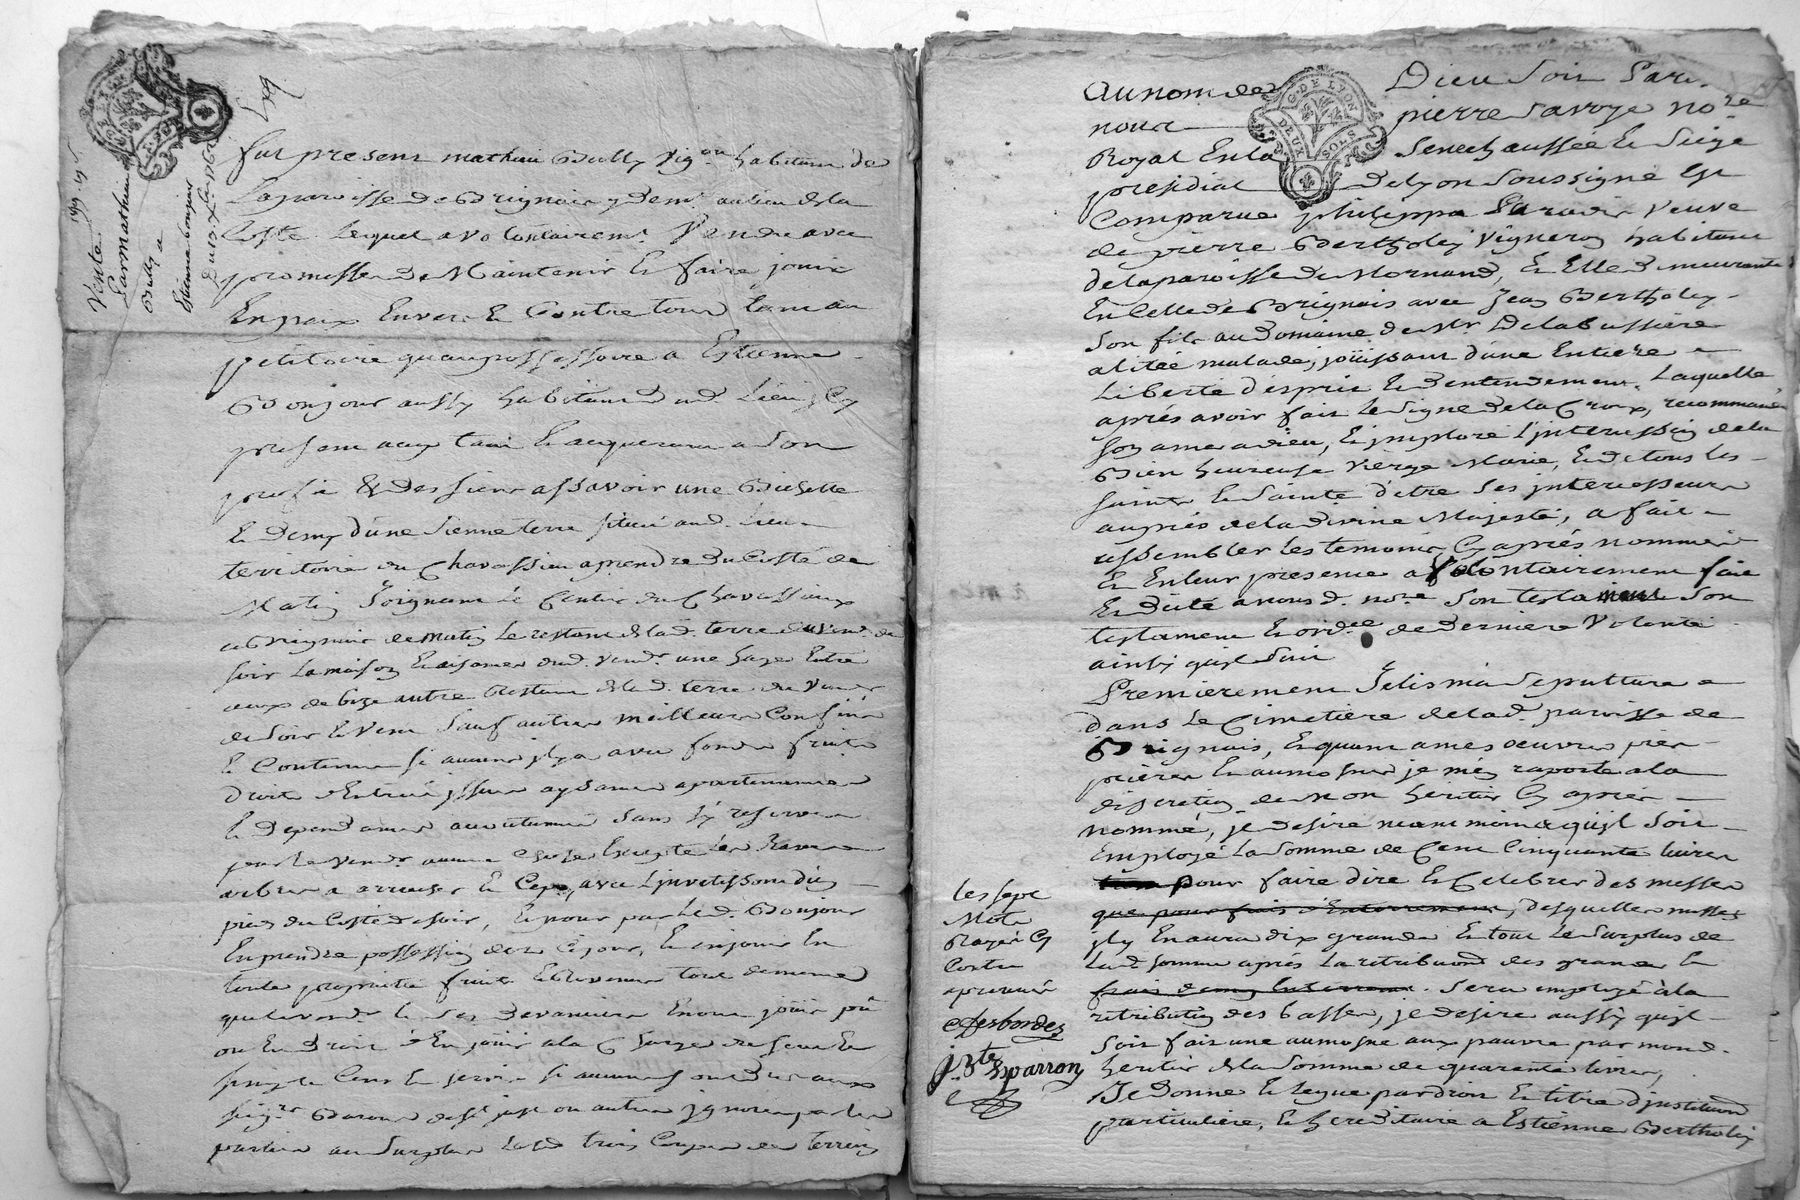 Vente
Par Mathieu
Bully a
Estienne bonjour
fut present mathieu Bully vig.on habitant de
La paroisse de Brignais y dem.t au lieu de la
Coste Lequel a volontairem.t Vendu avec
promesse de Maintenir et faire jouir
En paix Envers et Contre tous tant au
petitoire qu'au possessoire a Estienne
Bonjour aussy habitant dud. Lieu Cy
present acceptant et acquerant a Son
profit et des siens assavoir une Bicherée
et demy d'une Sienne terre située aud. Lieu
territoire du Chavassieu a prendre du Costé de
Matin Joignant le
de matin le restant de lad. terre du vend.r de
soir la maison et aisances dud. vend.r une haye entre
deux de bize autre restant de lad. terre du vend.r
de soir et vent Sauf autres meilleurs Confins
et Contenue si aucuns il y a avec fonds fruits
droits d'Entrées issues aysances apartenances
et dependances accoutumés Sans s'y reserver
par le vend.r aucune chose Excepté
arbres a arracher
pied du Costé de soir, et pour par led. Bonjour
En prendre possession dez Ce jour, et en jouir En
toute proprieté fruits et Revenus tout de meme
que le vend.r et Ses devanciers En ont jouis pû
ou eu droit d'En jouir a la Charge de
simple Cens et servis si aucuns sont dus aux
seig.rs Barons de S.t just ou autres ignorés par les
parties au Surplus
Au nom de Dieu Soit Par
nous pierre Savoye no.re
Royal En la Senechaussée et Siege
presidial de Lyon Soussigné Est
Comparue philippa Paradis Veuve
de pierre Bertholey Vigneron habitante
de la paroisse de Mornand, et Elle demeurante
En Celle de Brignais avec Jean Bertholey
Son fils au Domaine de Mr Delabussiere
alitée malade, joüissant d'une Entiere
Liberté d'esprit Et d'entendement. Laquelle
aprés avoir fait le signe de la Croix, recommandé
Son ame a dieu, Et imploré l'intercession de la
Bien heureuse Vierge Marie, Et de tous les
saints et Sainte d'être Ses intercesseurs
auprés de la divine Majesté, a fait
assembler les temoins Cy aprés nommés
Et En leur presence a Volontairement fait
Et dicté a nous d. no.re Son testament Son
testament Et ord.ce de derniere Volonté
ainsy qu'il Suit
Premierement J'elis ma Sepulture
dans le Cimetiére de lad. paroisse de
Brignais, Et quant a mes oeuvres pies
prières Et aumosnes je m'en raporte a la
discretion de mon heritier Cy aprés
nommé, je desire neantmoins qu'il Soit
Employé La Somme de Cent Cinquante livres
pour faire dire Et Celebrer des messes
que pour frais d'Enterrement, desquelles messes
il y En aura dix grandes Et tout le Surplus de
lad. Somme aprés La retribuon des grandes et
frais de mon Enterrement. Sera employé à la
retribution des basses, je desire aussy qu'il
Soit fait une aumosne aux pauvre par mond.
heritier de la Somme de quarante livres,
Je donne Et legue par droit Et titre d'institution
particuliere, Et hereditaire a Estienne Bertholey
les sept
Mots
Rayés Cy
Contre
aprouvés
Desbordes
j. Bte Esparron
G. DE LYON
DEUX SOLS